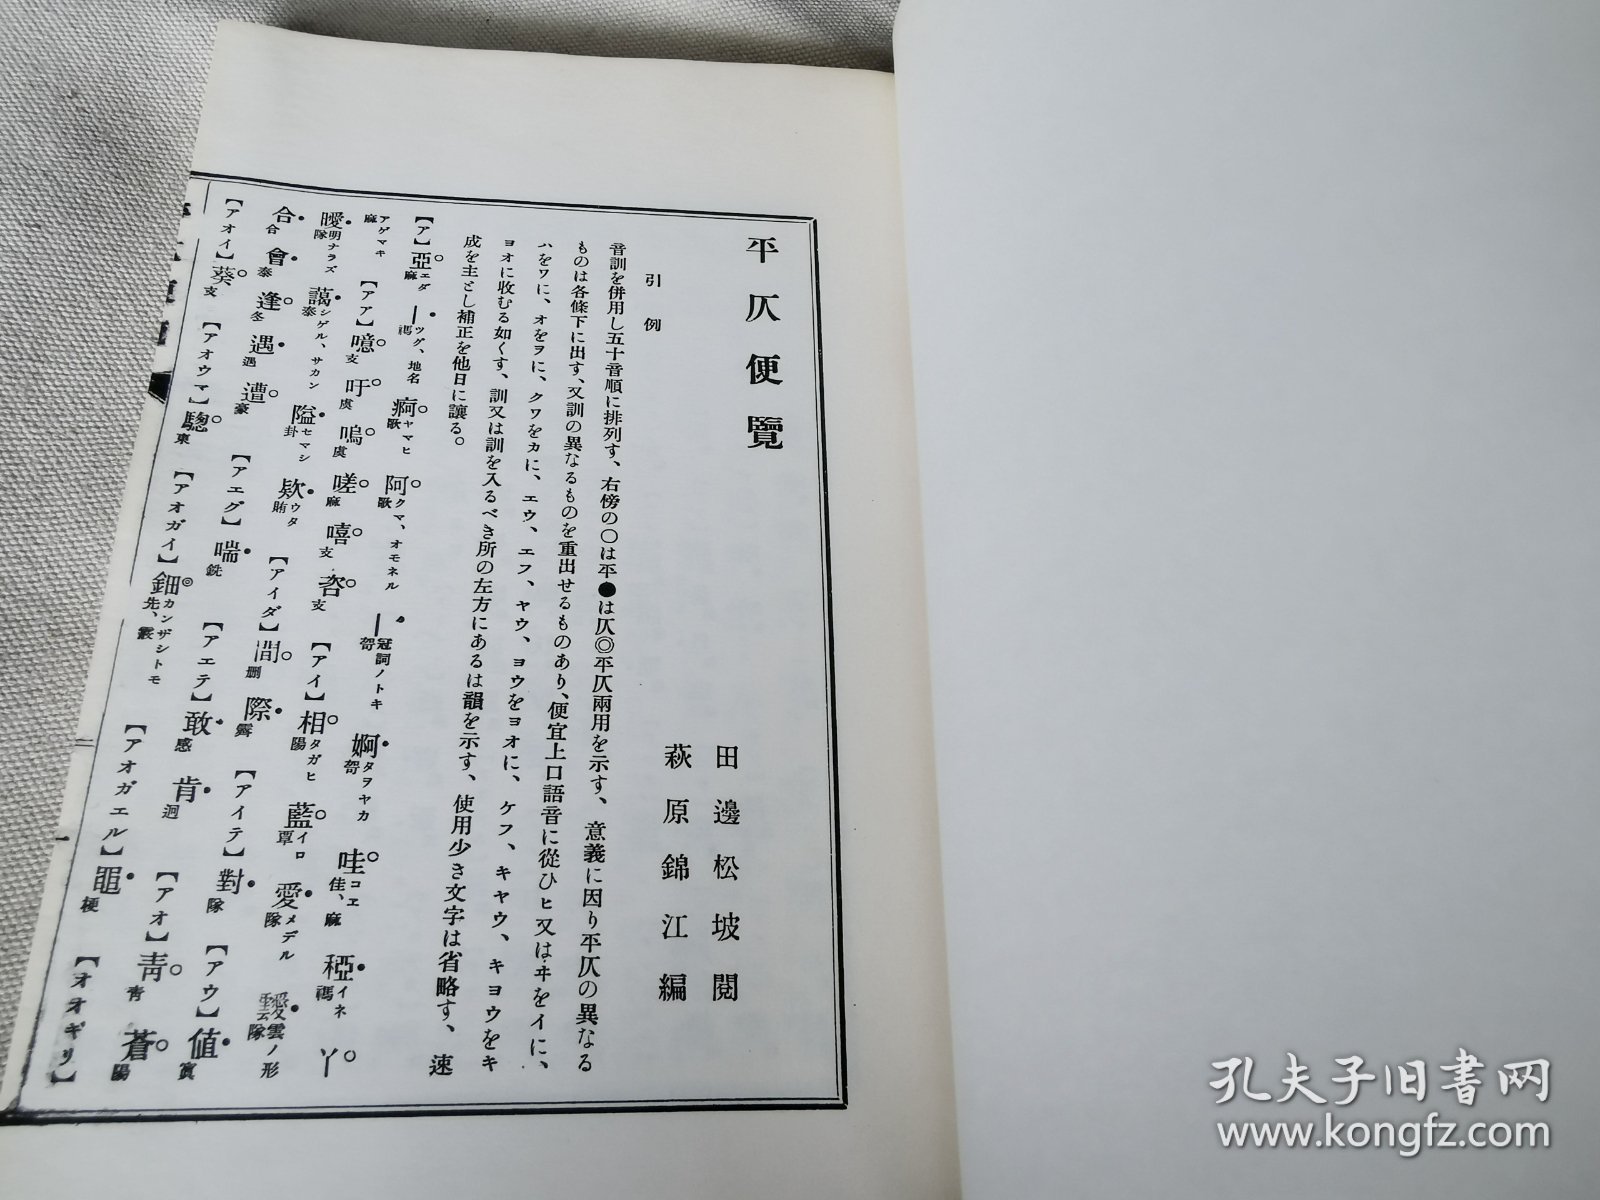 平仄便覽
田邊松坡閲
萩原錦江編
引例
音訓を併用し五十音順に排列す、右傍の〇は平●は仄◎平仄兩用を示す、意義に因り平仄の異なる
ものは各條下に出す、又訓の異なるものを重出せるものあり、便宜上口語音に從ひヒ又はヰをイに、
ハをワに、オをヲに、クワをカに、エウ、エフ、ヤウ、ヨウをヨオに、ケフ、キヤウ、キヨウをキ
ヨオに收むる如くす、訓又は訓を入るべき所の左方にあるは韻を示す、使用少き文字は省略す、速
成を主とし補正を他日に讓る。
【ア】亞○エダ麻 ―●ツグ、地名禡 痾○ヤマヒ歌 阿○クマ、オモネル歌 ―●冠詞ノトキ箇 婀●タヲヤカ哿 哇○コエ佳、麻 稏●イネ禡 丫○
アゲマキ麻 【アア】噫○支 吁○虞 嗚○虞 嗟○麻 嘻○支 咨○支 【アイ】相○タガヒ陽 藍○イロ覃 愛●メデル隊 靉●雲ノ形隊
曖●明ナラズ隊 藹●シゲル、サカン泰 隘●セマシ卦 欸●ウタ賄 【アイダ】間○刪 際●霽 【アイテ】對●隊 【アウ】値●寘
合●合 會●泰 逢○冬 遇●遇 遭○豪 【アエグ】喘●銑 【アエテ】敢●感 肯●迥 【アオ】靑○靑 蒼○陽
【アオイ】葵○支 【アオウマ】驄○東 【アオガイ】鈿◎カンザシトモ先、霰 【アオガエル】黽●梗 【オオギリ】
孔夫子旧书网
www.kongfz.com